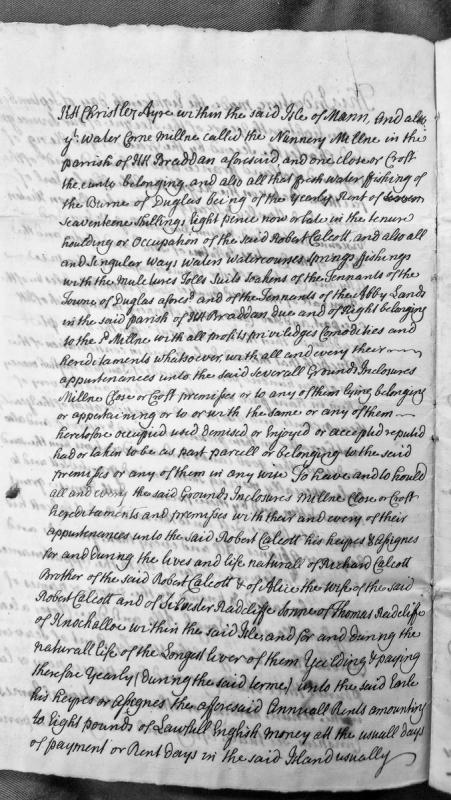 KK Christlez Ayre within the said Isle of Mann, And also
yt. water Corne Millne called the Nunnery Millne in the
parrish of KK Braddan aforesaid, and one close or Croft
thereunto belonging and also all that fresh water ffishing of
the Burne of Duglas being of the yearly Rent of
Seaventeene Shillings Eight pence now or late in the tenure
houlding or Occupation of the said Robert Calcott, and also all
and Singular ways Waters Watercourses Springs ffishings
with the Mulctures Tolls Suits Soakens of the Tennants of the
Towne of Duglas afores.d and of the Tennants of the Abby Lands
in the said parish of KK Braddan due and of Right belonging
to the s.d Millne with all profits priviledges Comodities and
hereditaments whatsoever, with all and every their
appurtenances unto the said severall Grounds Inclosures
Millne Close or Croft premisses or to any of them lying belonging
or appertaining or to or with the same or any of them
heretofore occupied used demised or Enjoyed or accepted reputed
had or taken to be as part parcell or belonging to the said
premisses or any of them in any wise To have and to hould
all and every the said Grounds Inclosures Millne Close or Croft
hereditaments and premisses with their and every of their
appurtenances unto the said Robert Calcott his heyres & assignes
for and during the lives and life naturall of Richard Calcott
Brother of the said Robert Calcott & of Alice the wife of the said
Robert Calcott and of Silvester Radcliffe Sonne of Thomas Radcliffe
of Knockalloe within the said Isle, and for and during the
naturall life of the Longest liver of them Yeilding & paying
therefore Yearly (during the said terme) unto the said Earle
his heyres or Assegnes the aforesaid Annuall Rents amounting
to Eight pounds of Lawfull English money att the usuall days
of payment or Rent days in the said Island usually